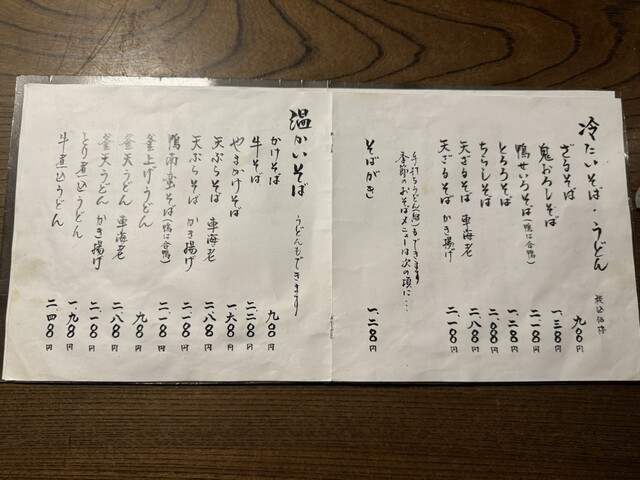 冷たいそば・うどん
税込価格
ざるそば 九〇〇円
鬼おろしそば 一、三八〇円
鴨せいろそば(鴨は合鴨) 二、一八〇円
とろろそば 一、二八〇円
ちらしそば 二、〇八〇円
天ざるそば 車海老 二、八八〇円
天ざるそば かき揚げ 二、一八〇円
手打ちうどん(細)もできます
季節のおそばメニューは次の頁に…
そばがき 一、二八〇円
温かいそば うどんもできます
かけそば 九〇〇円
牛そば
やまかけそば 一、六八〇円
天ぷらそば 車海老 二、八八〇円
天ぷらそば かき揚げ 二、一八〇円
鴨南蛮そば(鴨は合鴨) 二、一八〇円
釜上げうどん 九〇〇円
釜天うどん 車海老 二、八八〇円
釜天うどん かき揚げ 二、一八〇円
とり煮込うどん 一、九八〇円
牛煮込うどん 二、四八〇円